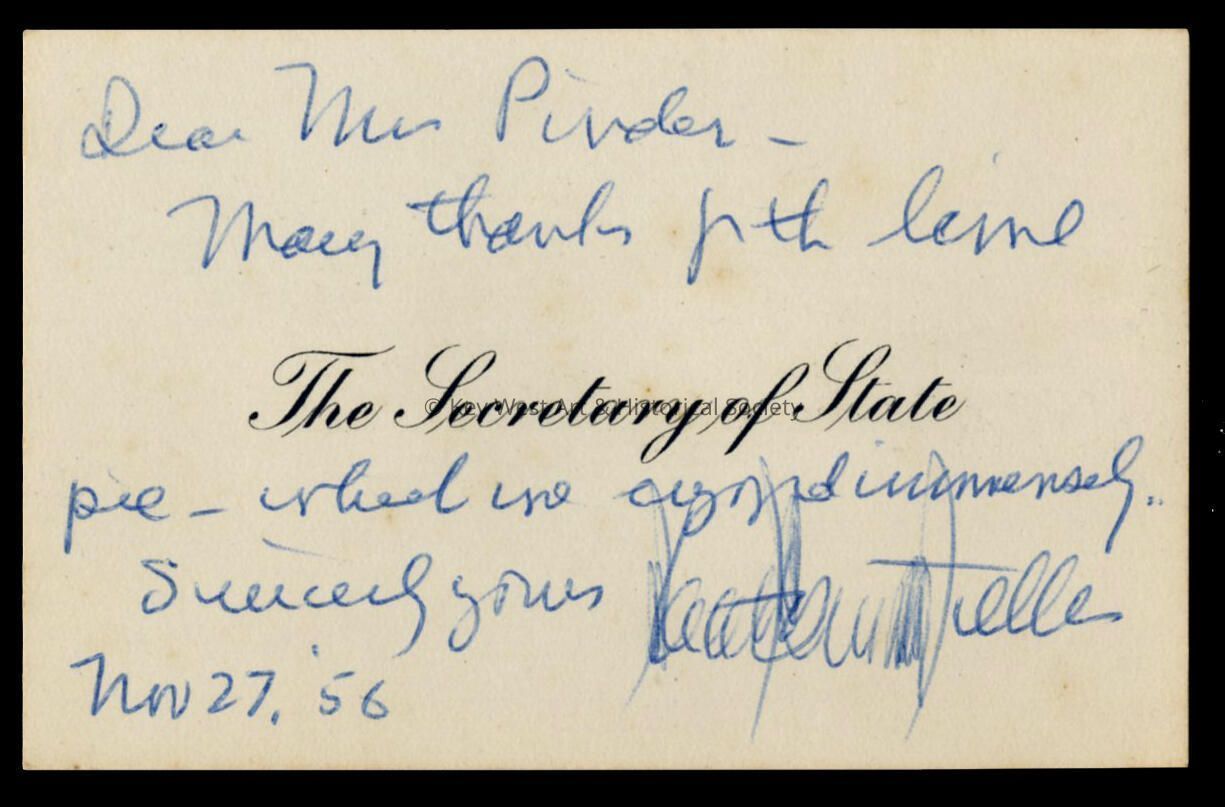 Dear Mrs Pinder -
Many thanks for the lime
The Secretary of State
© Key West Art & Historical Society
pie - which we enjoyed immensely.
Sincerely yours
Nov 27, '56